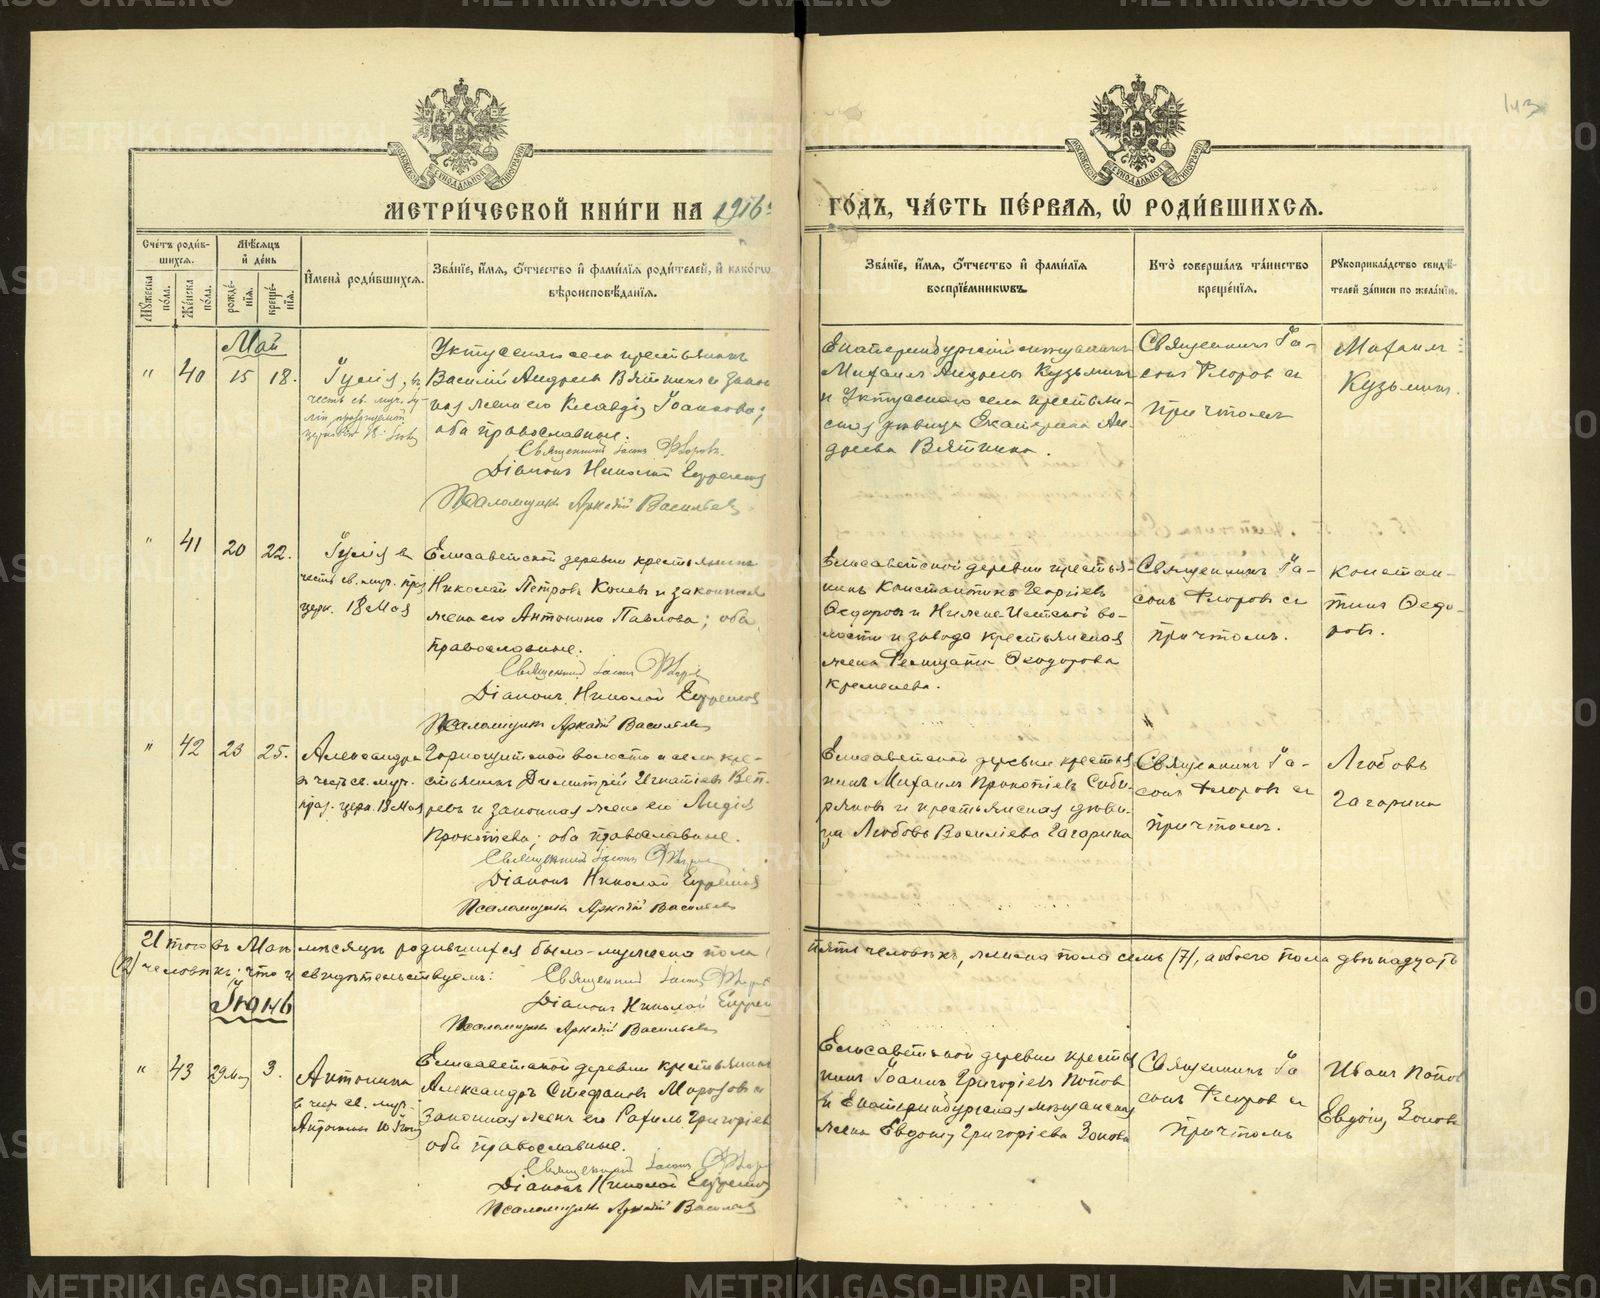 METRIKI.GASO-URAL.RU
143
МЕТРИ́ЧЕСКОЙ КНИ́ГИ НА 1916
ГО́ДЪ, ЧА́СТЬ ПЕ́РВАЯ, Ѿ РОДИ́ВШИХСЯ.
Сче́тъ роди́вшихся.
Мѣ́сяцъ и҆ де́нь
Му́жеска по́ла.
Же́нска по́ла.
рожде́нія.
креще́нія.
И҆мена̀ роди́вшихся.
Зва́нїе, и҆́мя, ѻ҆́тчество и҆ фами́лїя роди́телей, и҆ како́гѡ
вѣроисповѣ́данїя.
Зва́нїе, и҆́мя, ѻ҆́тчество и҆ фами́лїя
воспрїе́мниковъ.
Кто̀ соверша́лъ та́инство
креще́нїя.
Рꙋкоприкла́дство свидѣ́-
телей за́писи по жела́нїю.
Май
" 40 15 18.
Іулія, въ
честь св. муч. Іу-
ліи
Уктусскаго села крестьянинъ
Василій Андреевъ Вяткинъ и закон-
ная жена его Клавдія Іоаннова;
оба православные.
Священникъ Іасонъ Флоровъ.
Діаконъ Николай
Псаломщикъ Аркадій Васильевъ
Екатеринбургскій мѣщанинъ
Михаилъ Андреевъ Кузьминъ
и Уктусскаго села крестьян-
ская дѣвица Екатерина Ан-
дреева Вяткина.
Священникъ Іа-
сонъ Флоровъ съ
причтомъ
Михаилъ
Кузьминъ.
" 41 20 22.
Іулія въ
честь св. муч. праз.
церк. 18 Мая
Елисаветской деревни крестьянинъ
Николай Петровъ и законная
жена его Антонина Павлова; оба
православные.
Священникъ Іасонъ Флоровъ
Діаконъ Николай
Псаломщикъ Аркадій Васильевъ
Елисаветской деревни крестья-
нинъ Константинъ Георгіевъ
Ѳедоровъ и Нижне-Исетской во-
лости и завода крестьянская
жена Фелицата Ѳеодорова
Кременева.
Священникъ Іа-
сонъ Флоровъ съ
причтомъ.
Констан-
тинъ Ѳедо-
ровъ.
" 42 23 25.
Александра
въ честь св. муч.
праз. церк. 18 Мая
Горнощитской волости и села кре-
стьянинъ Димитрій Игнатіевъ Веп-
ревъ и законная жена его Лидія
Прокопіева; оба православные.
Священникъ Іасонъ Флоровъ
Діаконъ Николай
Псаломщикъ Аркадій Васильевъ
Елисаветской деревни крестья-
нинъ Михаилъ Прокопіевъ Сиби-
ряковъ и крестьянская дѣви-
ца Любовь Василіева Гагарина
Священникъ Іа-
сонъ Флоровъ съ
причтомъ.
Любовь
Гагарина
Итого въ Маѣ мѣсяцѣ родившихся было-мужеска пола
пять человѣкъ, женска пола семь (7), а обоего пола двѣнадцать
(12) человѣкъ; что и свидѣтельствуемъ:
Священникъ Іасонъ Флоровъ
Діаконъ Николай
Псаломщикъ Аркадій Васильевъ
Іюнь
" 43 29 Мая 3.
Антонина
въ честь св. муч.
Антонины 10 Іюня
Елисаветской деревни крестьянинъ
Александръ Стефановъ Морозовъ и
законная жена его Рахиль Григоріева
оба православные.
Священникъ Іасонъ Флоровъ
Діаконъ Николай
Псаломщикъ Аркадій Васильевъ
Елисаветской деревни крестья-
нинъ Іоаннъ Григоріевъ Поповъ
и Екатеринбургская мѣщанская
жена Евдокія Григоріева Зонова
Священникъ Іа-
сонъ Флоровъ съ
причтомъ
Иванъ Поповъ
Евдокія Зонова